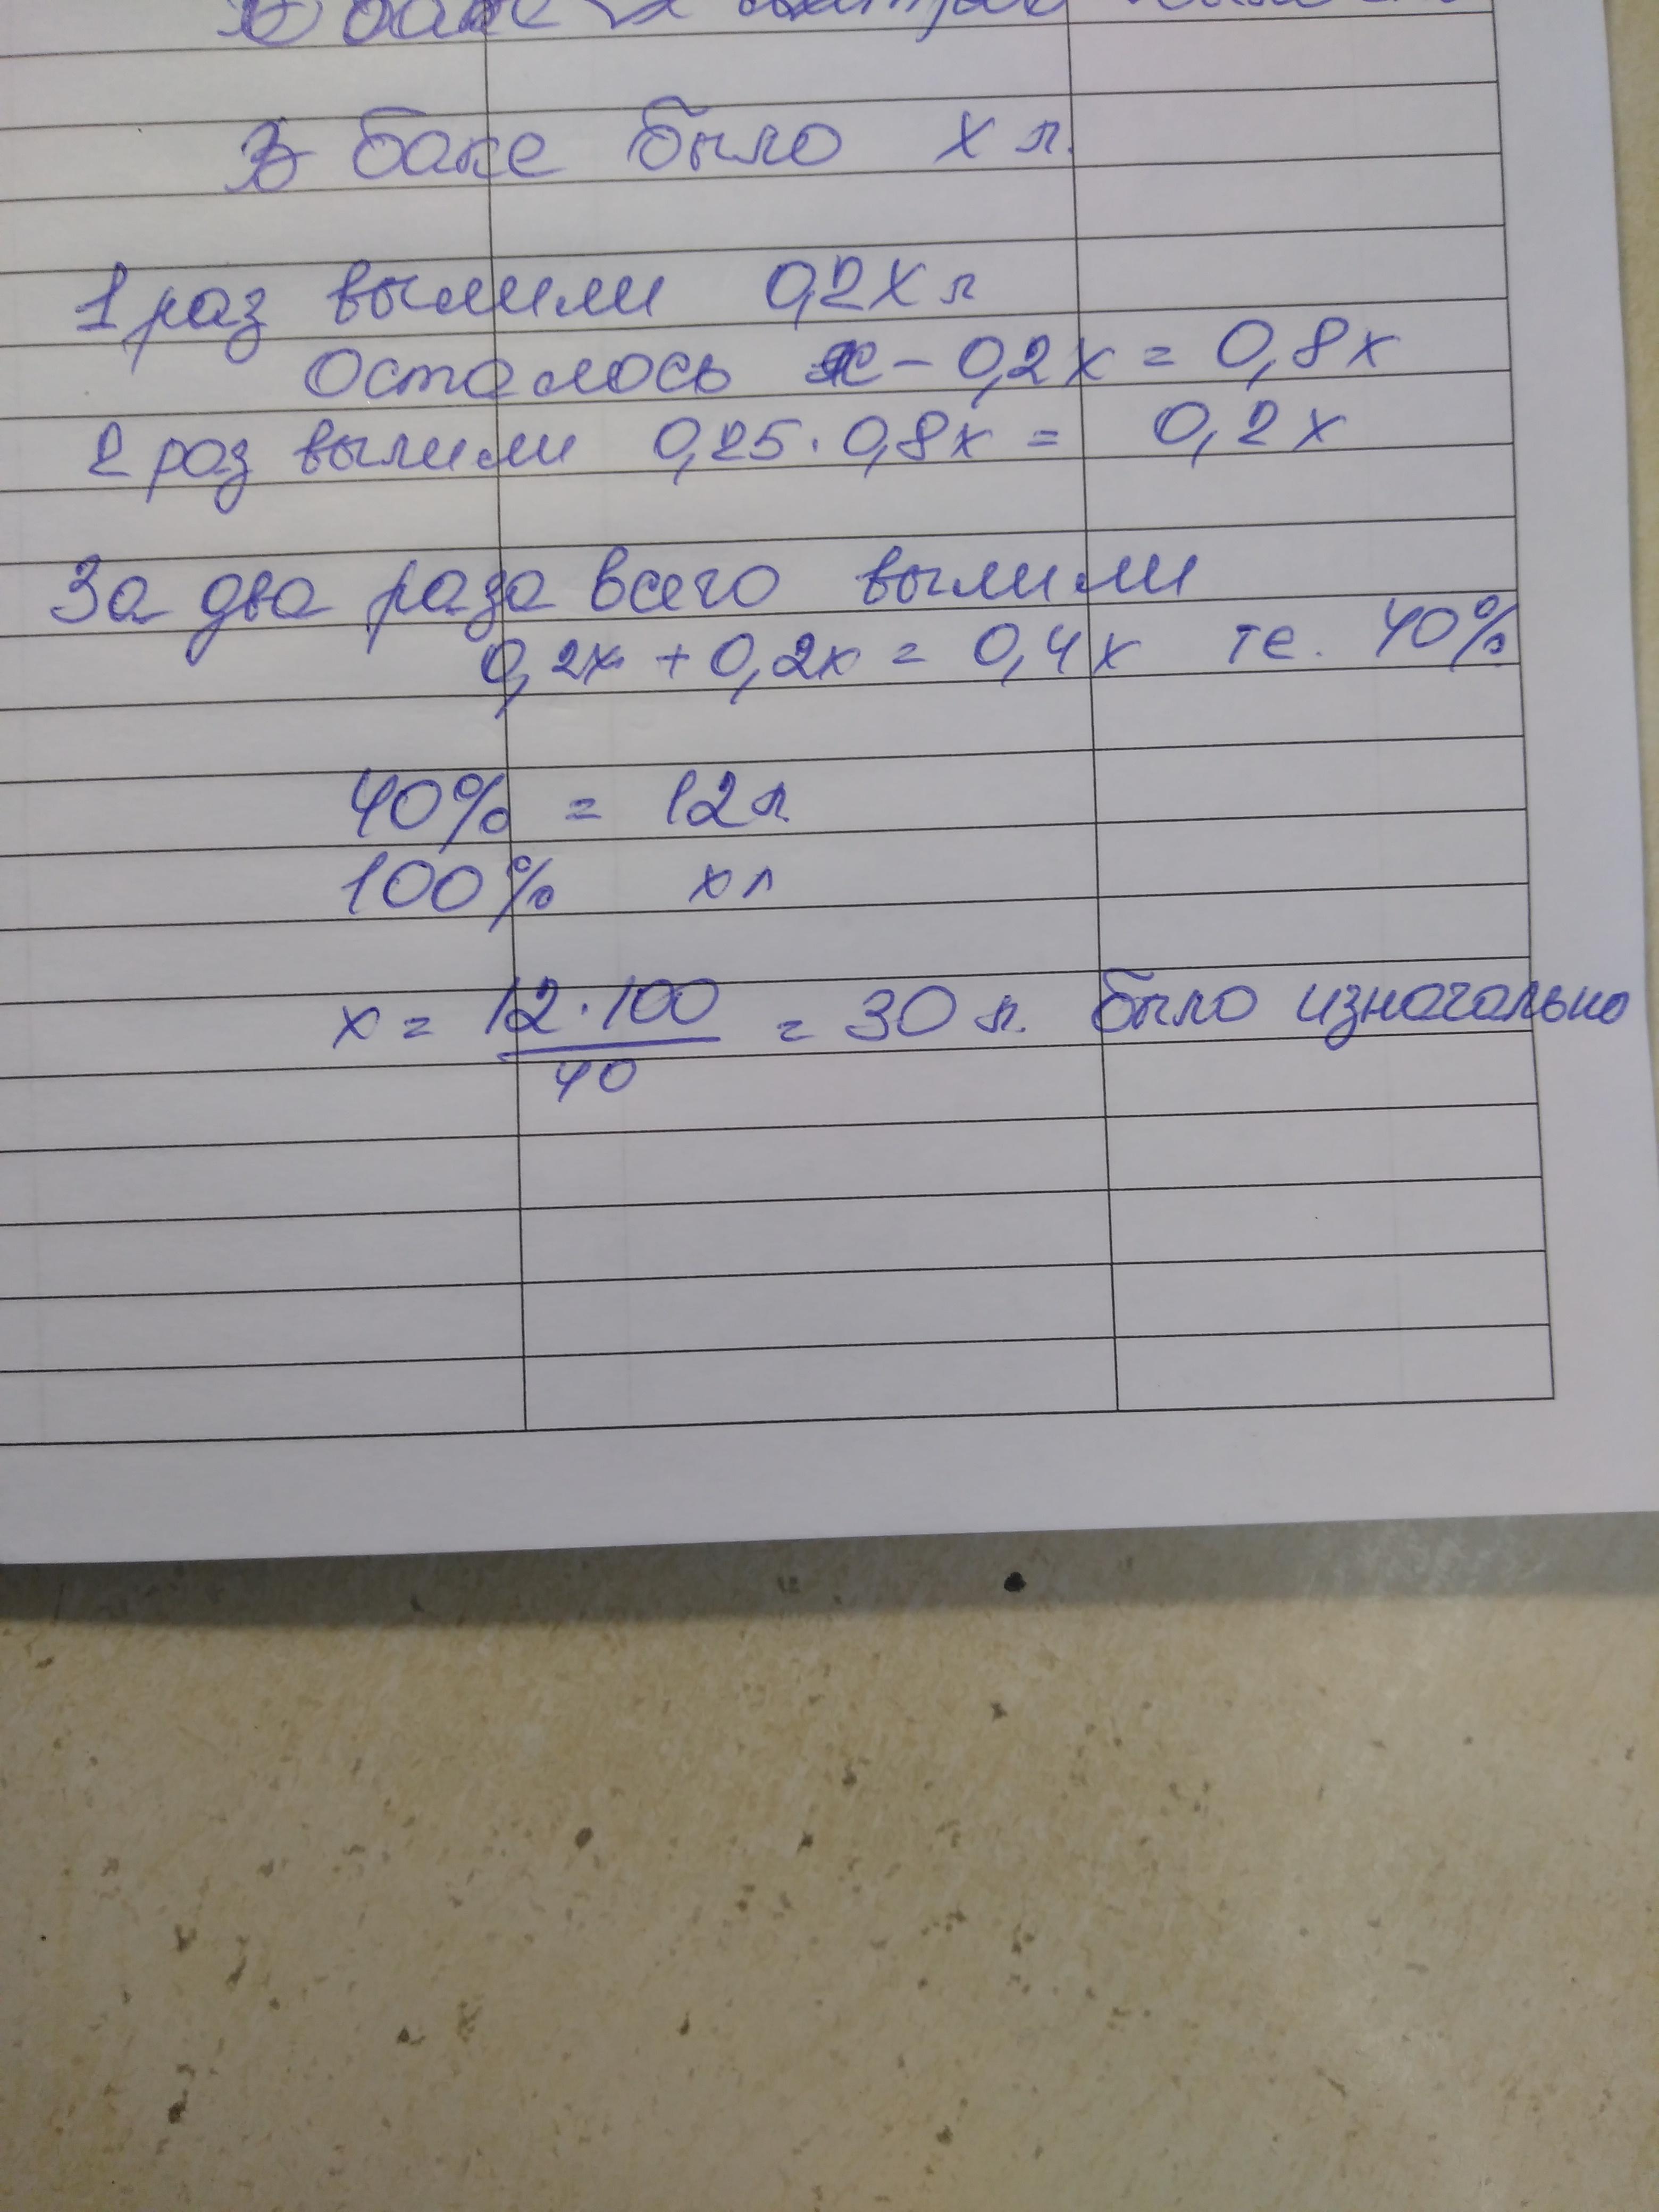 В баке
В баке было х л.
1 раз вылили 0,2х л
Осталось х - 0,2х = 0,8х
2 раз вылили 0,25 · 0,8х = 0,2х
За два раза всего вылили
0,2х + 0,2х = 0,4х те. 40%
40% = 12 л
100% х л
х = 12 · 100 / 40 = 30 л. было изначально